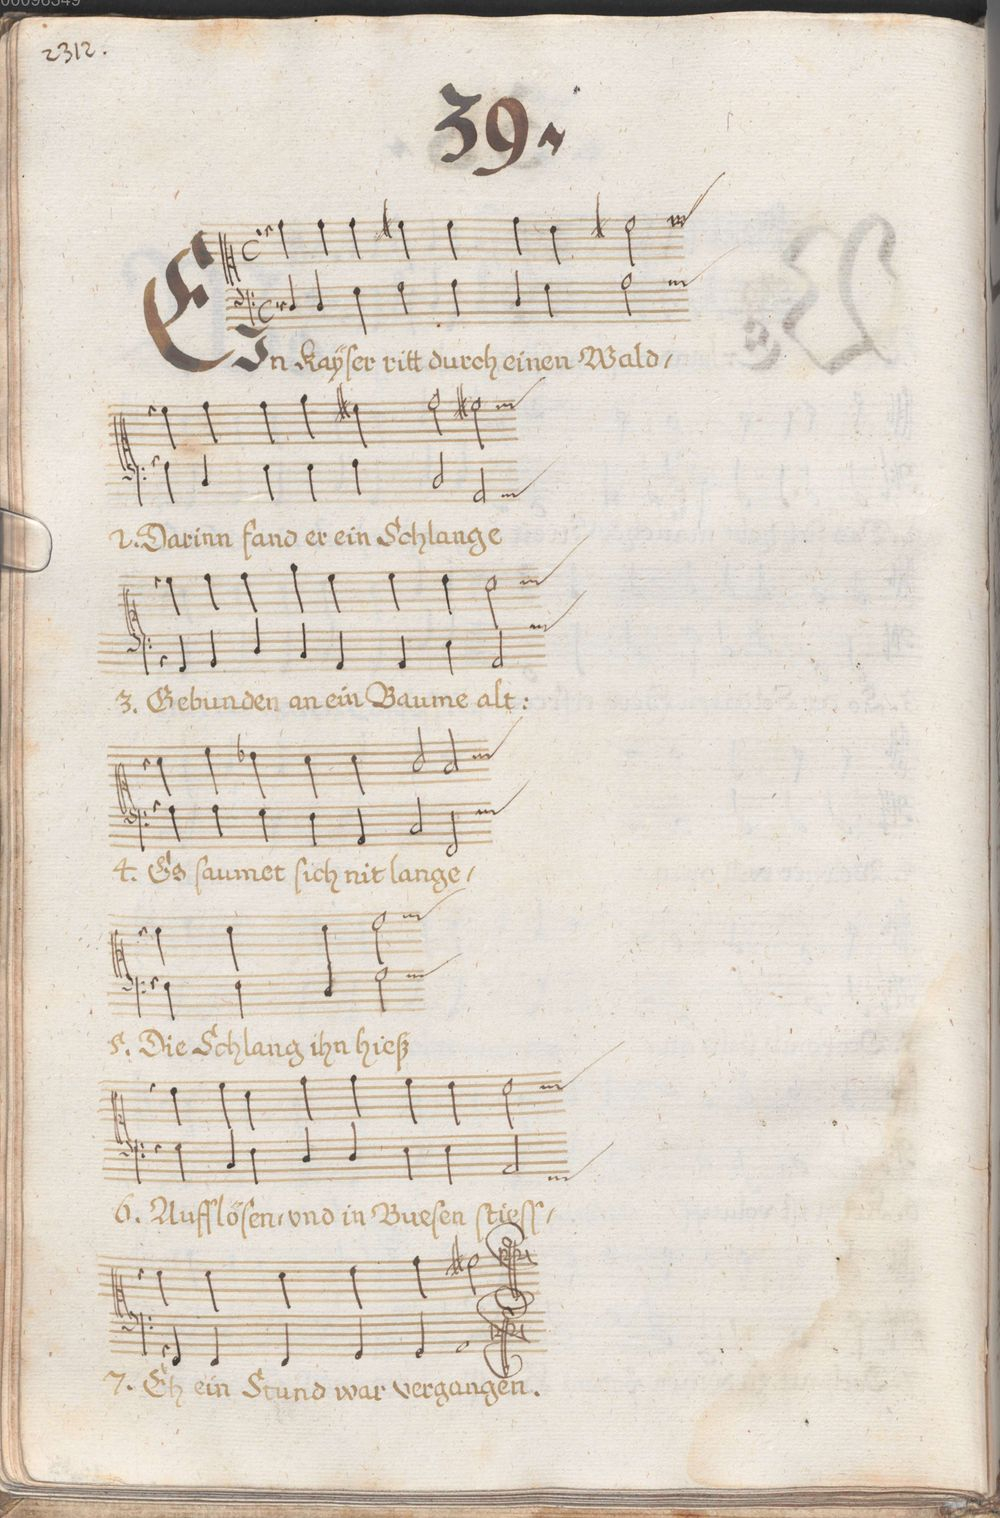 00096349
2312.
39.
EIn Kaÿser ritt durch einen Wald/
2. Darinn fand er ein Schlange
3. Gebunden an ein Baume alt:
4. Es saumet sich nit lange/
5. Die Schlang ihn hieß
6. Aufflösen/ vnd in Buesen stiess/
7. Eh ein Stund war vergangen.